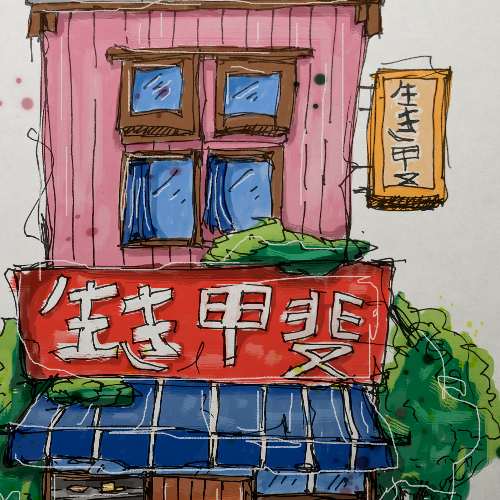 生き甲斐
生き甲斐